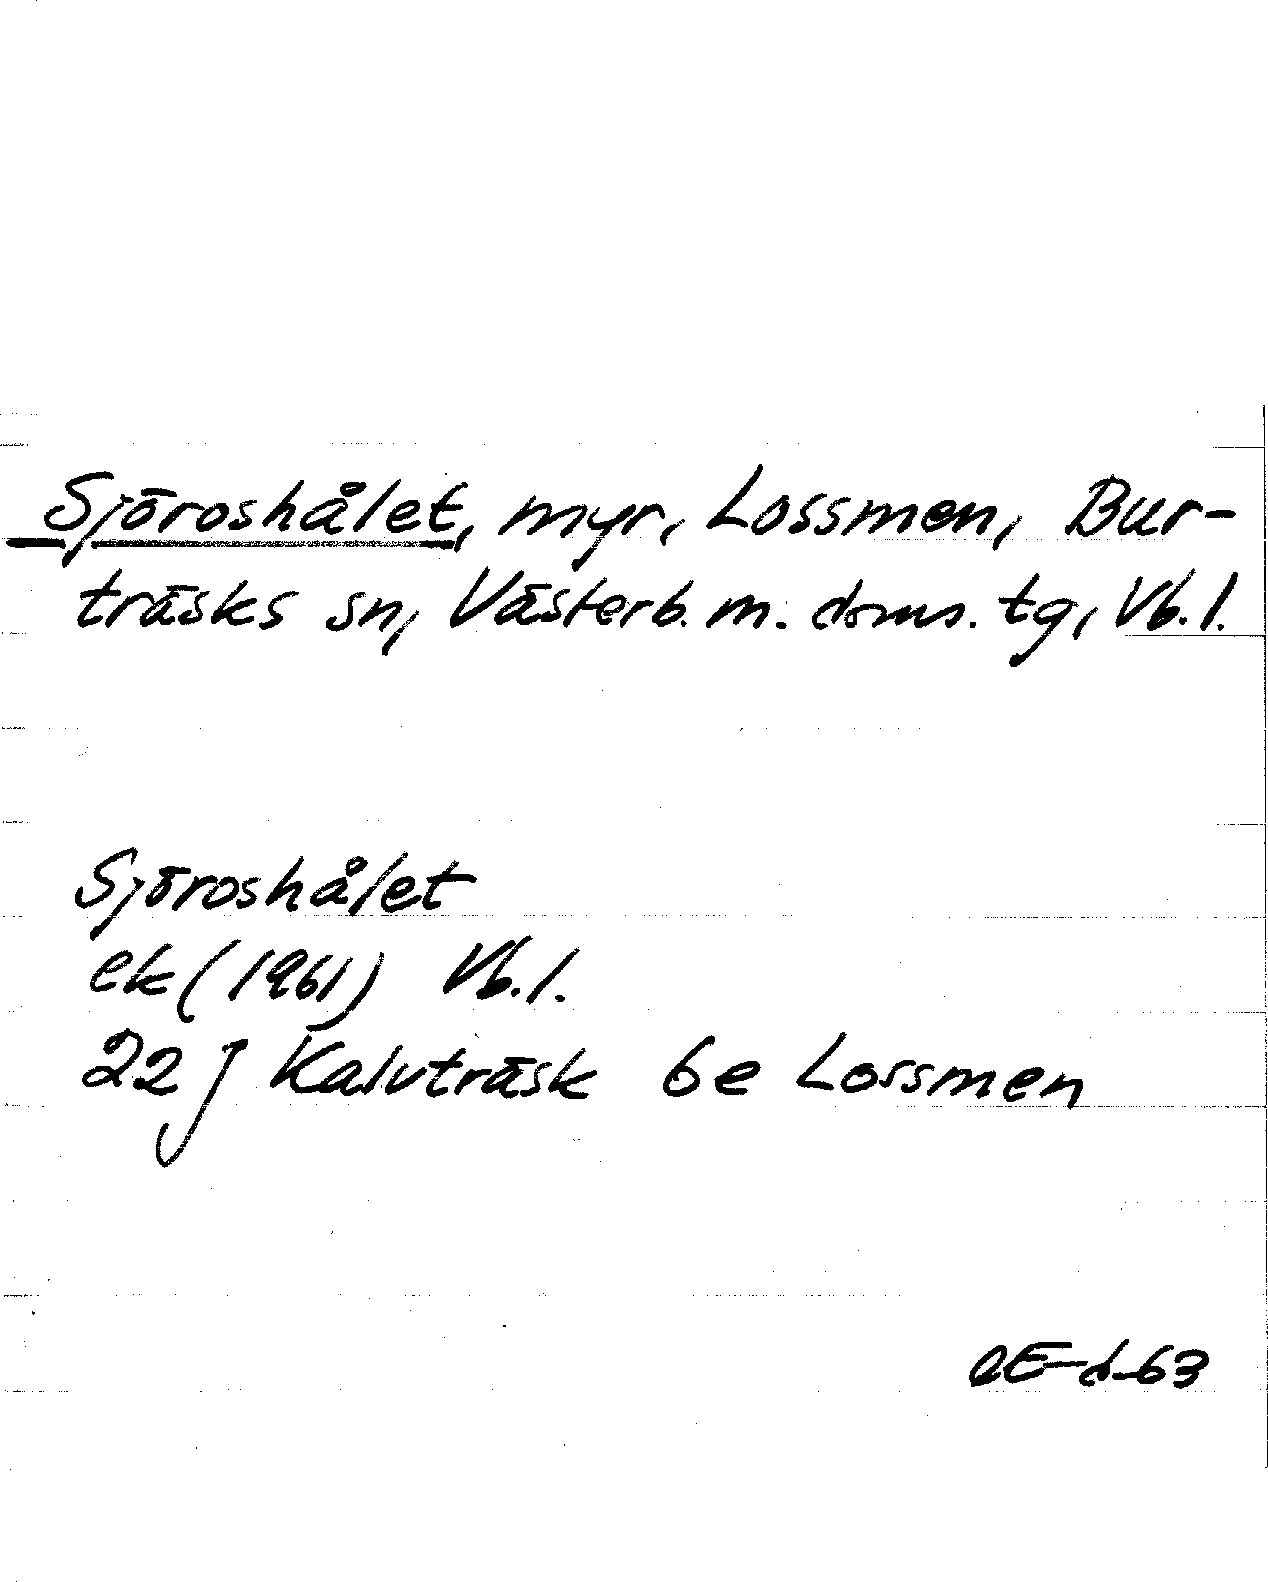 Sjöroshålet, myr, Lossmen, Bur-
träsks sn, Västerb. m. doms. tg, Vb. l.
Sjöroshålet
ek (1961) Vb. l.
22 J Kalvträsk 6e Lossmen